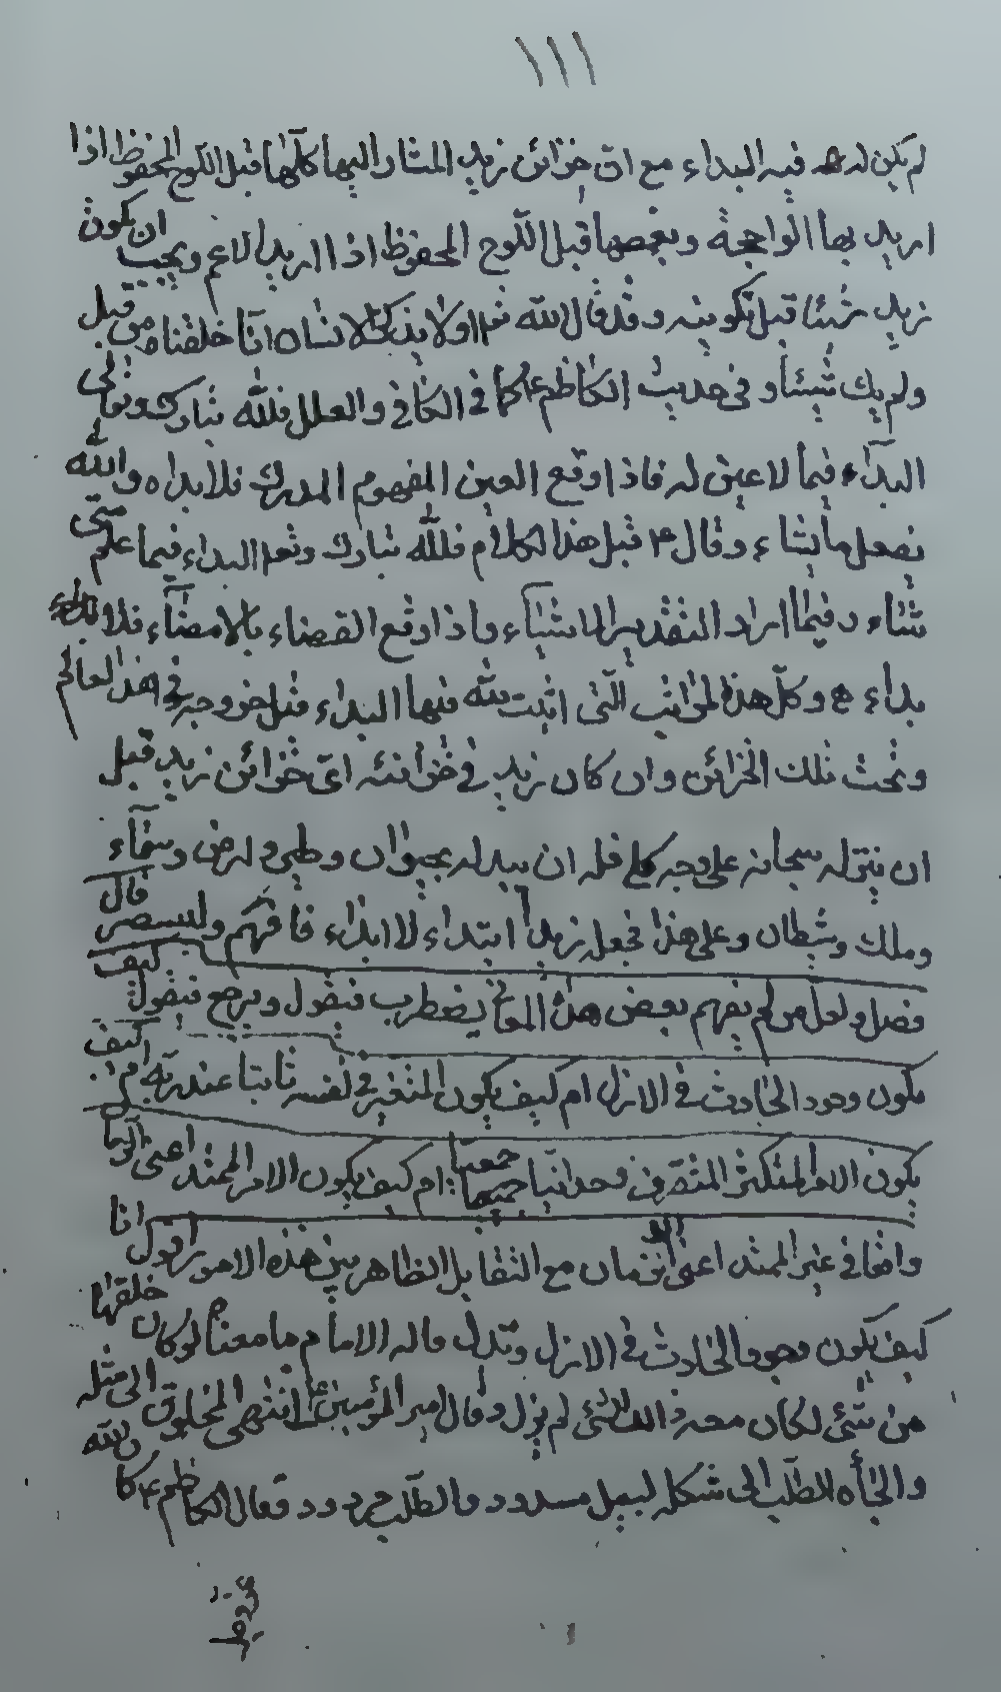 ١١١
لم يكن له فيه البداء مع ان خزائن زيد المشار اليها كلها قبل اللوح المحفوظ اذا
اريد بها الواجحة وبعضها قبل اللوح المحفوظ اذا اريد الاعم ويجب ان يكون
زيد شيئا قبل تكوينه وقد قال الله تعا اولا يذكر الانسان انا خلقناه من قبل
ولم يك شيئا و في حديث الكاظم ع كما في الكافي والعلل فلله تبارك وتعالى
البدآء فيما لا عين له فاذا وقع العين المفهوم المدرك فلا بداء والله
يفعل ما يشاء وقال ع قبل هذا الكلام فلله تبارك وتعا البداء فيما علم متى
شاء وفيما اراد التقدير الاشيآء واذا وقع القضاء بالامضآء فلا
بداء وكل هذه المراتب التى اثبت لله فيها البداء قبل خروجه في هذا العالم
وتحت تلك الخزائن وان كان زيد في خزائنه اى خزائن زيد قبل
ان ينزله سبحانه على وجه كلي فله ان يبدله بحيوان وطير وارض وسمآء
وملك وشيطان وعلى هذا فجعل زيد ابتداء لا ابداء فافهم وليستبصر قال
فصل ولعل من لم يفهم بعض هذه المعاني يضطرب فيقول ويرجع فيقول كيف
يكون وجود الحادث في الازل ام كيف يكون المتغير في نفسه ثابتا عند ربه ام كيف
يكون الامر المتكثر المتفرق وحدانيا جمعيا ام كيف يكون الامر الممتد اعنى الزمان
واقعا في غير الممتد اعنى اللازمان مع التقابل الظاهر بين هذه الامور اقول انا
كيف يكون وجود الحادث في الازل وقد قال الامام ما معناه لو كان خلقها
من شئ لكان معه ذلك الشئ لم يزل وقال امير المؤمنين ع انتهى المخلوق الى مثله
والجأه الطلب الى شكله السبيل مسدود والطلب مردود وقال الكاظم ع كان الله